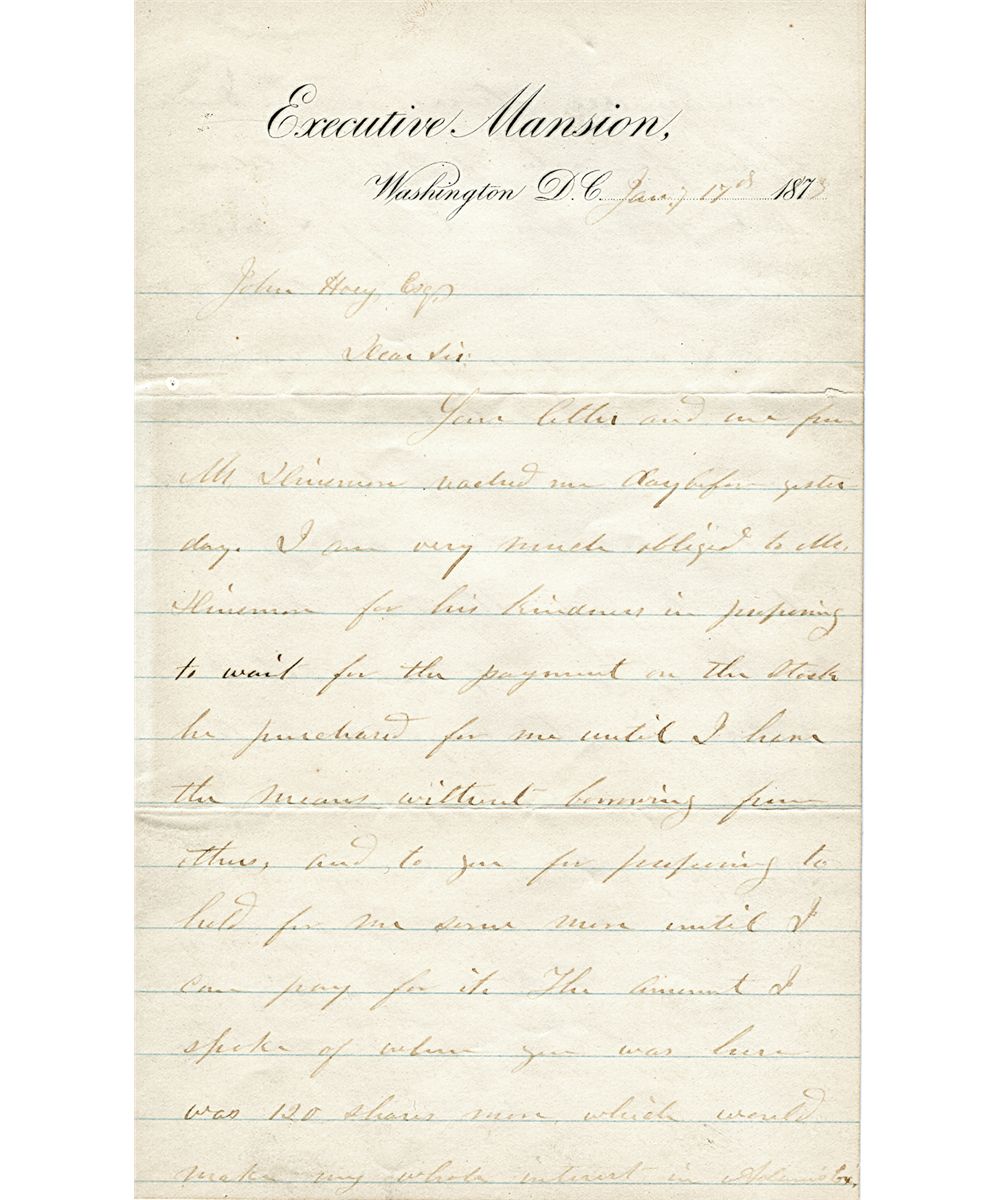 Executive Mansion,
Washington D.C. Jany 17th 1873
John Hoey, Esq,
Dear Sir:
Your letter and one from
Mr Dinsmore reached me day before yester
day. I am very much obliged to Mr.
Dinsmore for his kindness in proposing
to wait for the payment on the stock
he purchased for me until I have
the means without borrowing from
others, and, to you for proposing to
hold for me some more until I
can pay for it. The amount I
spoke of when you was here
was 120 shares more which would
make my whole interest in